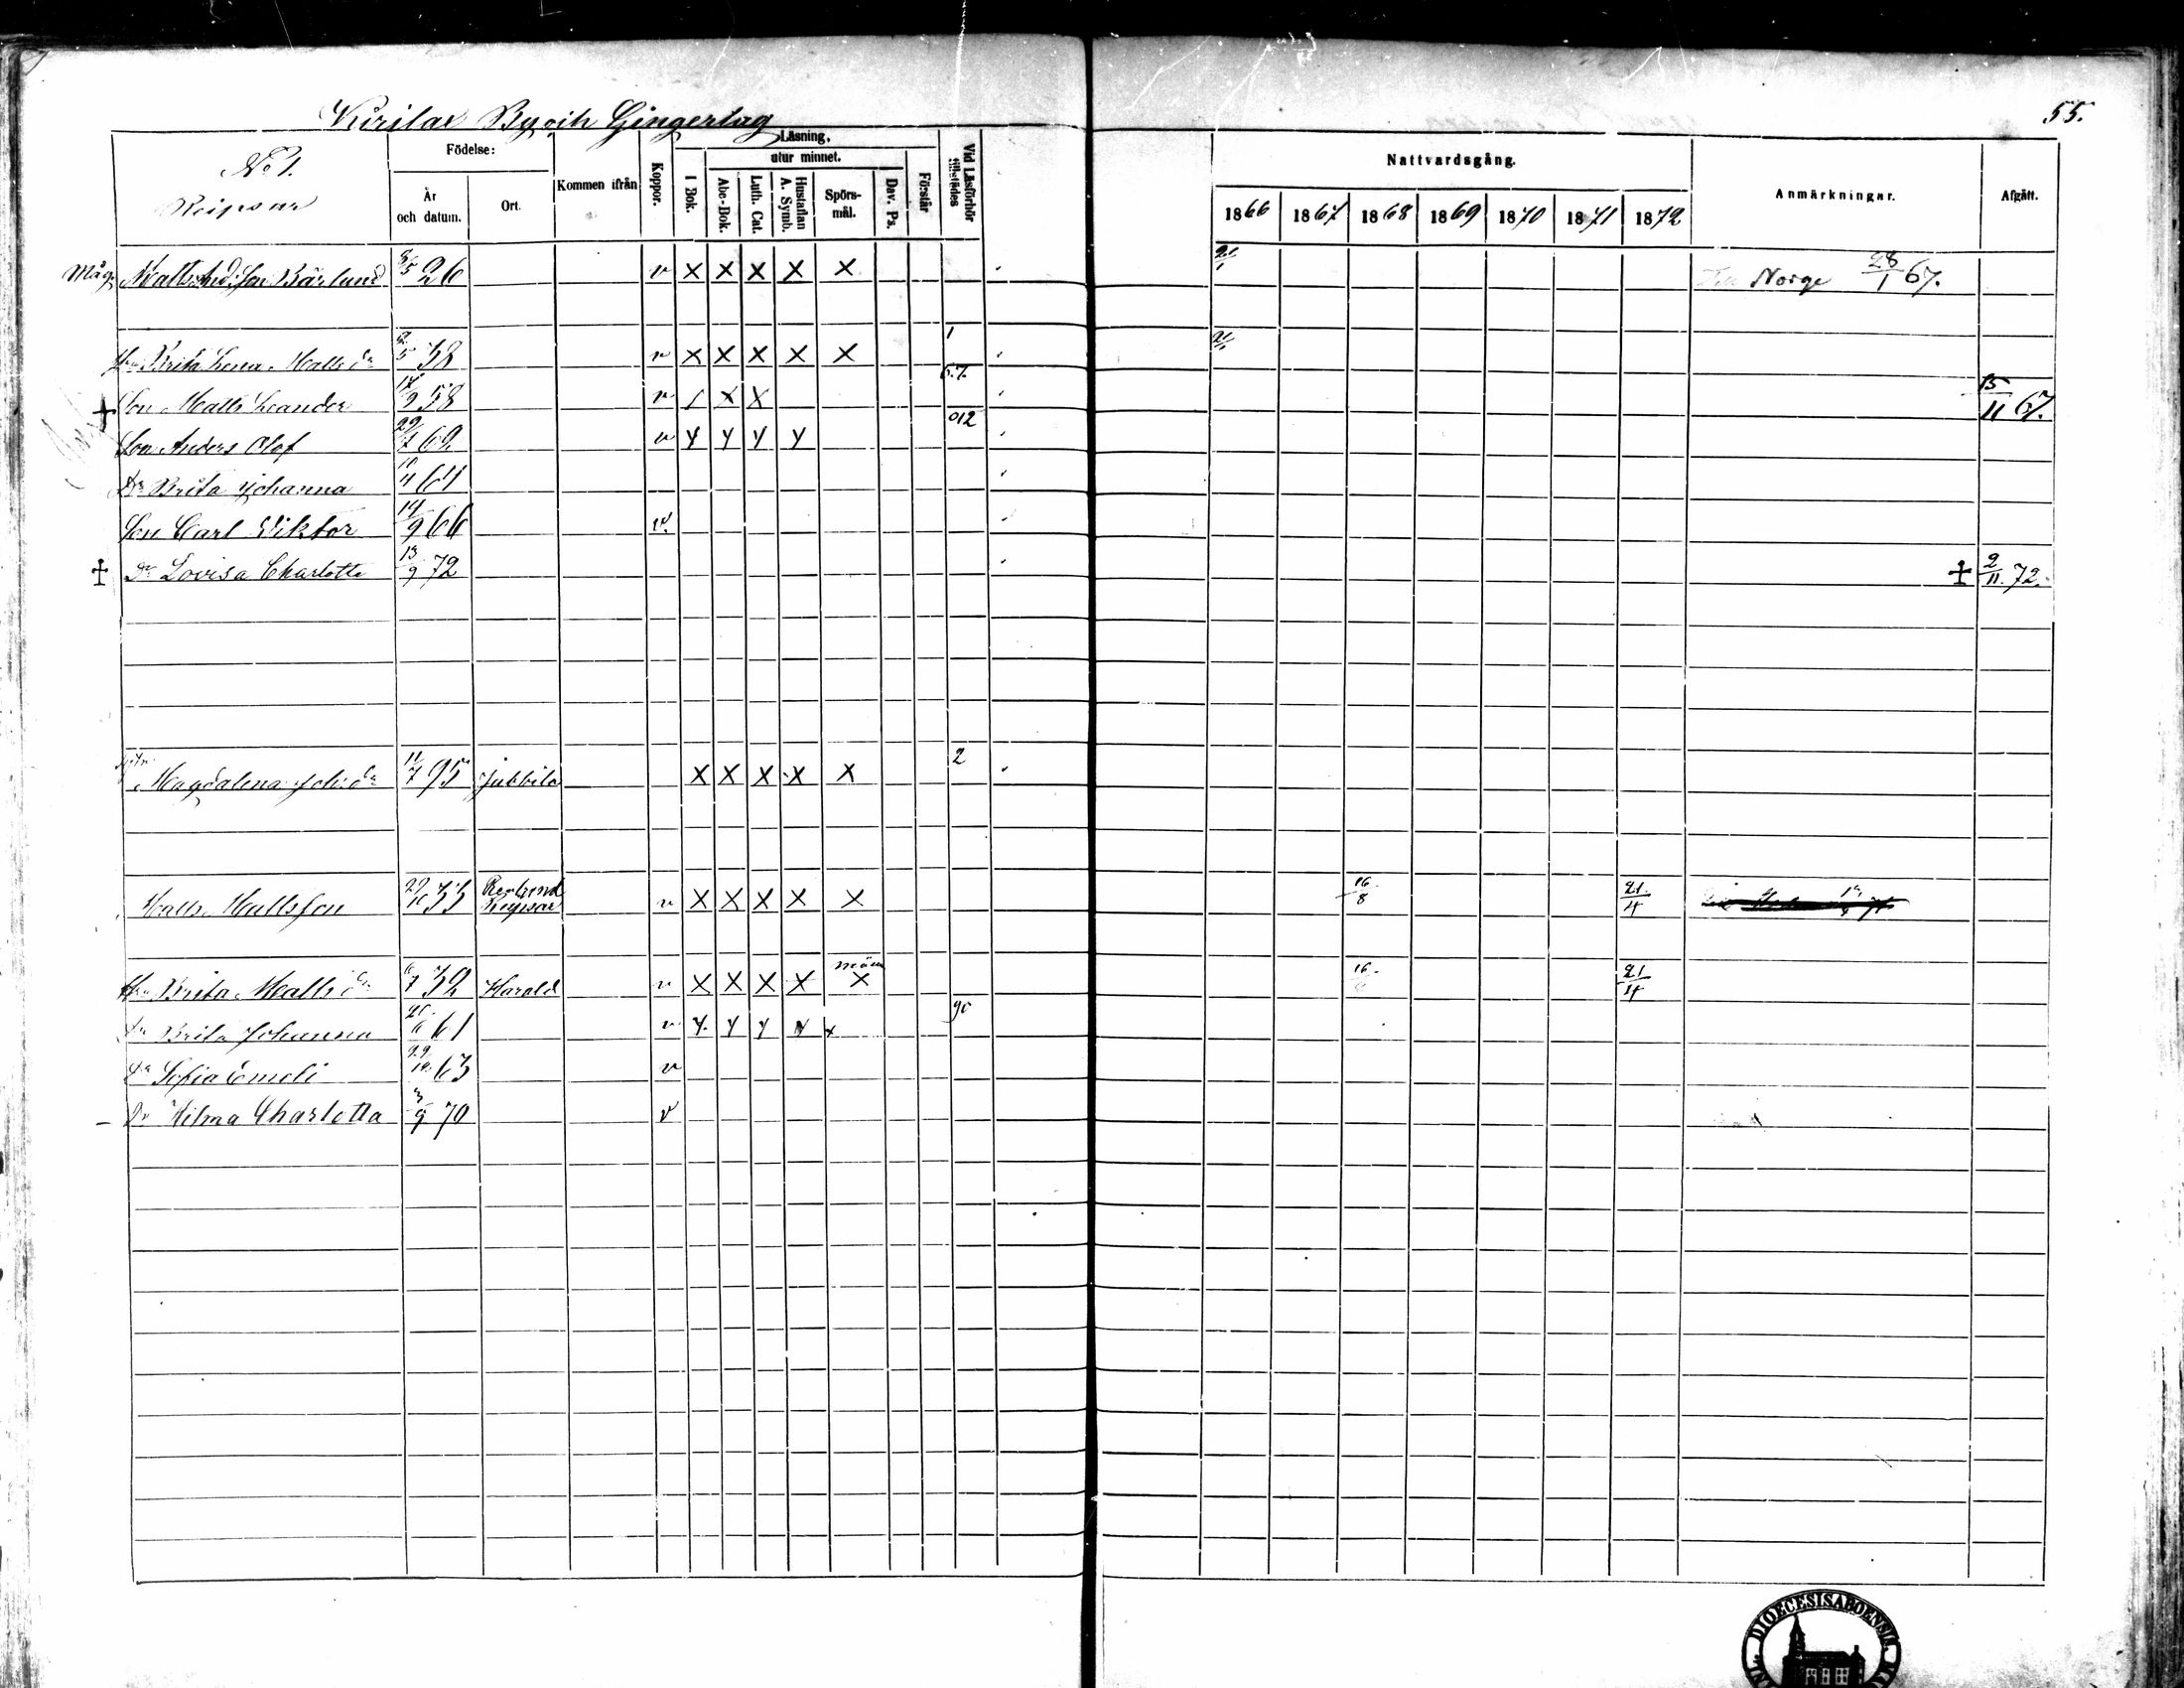 Kirilax By och Gingerlag
55.
No 1.
Reipsar
Födelse:
År och datum.
Ort.
Kommen ifrån
Koppor.
Läsning,
utur minnet.
I Bok.
Abc-Bok.
Luth. Cat.
Hustaflan A. Symb.
Spörs-mål.
Dav. Ps.
Förstår
Vid Läsförhör tillstädes
Nattvardsgång.
1866 1867 1868 1869 1870 1871 1872
Anmärkningar.
Afgått.
Måg. Matts And: son Bärlund 26 v X X X X X Norge 28/1 67.
Brita Lena Matts dr 38 v X X X X X 1
67
Son Matts Leander 17/9 58 v X X 15/11 67.
Son Anders Olof 62 v y y y y 012
Dr Brita Johanna 64
Son Carl Viktor 19/9 66 v
‡ Dr Lovisa Charlotta 13/9 72 ‡ 2/11. 72.
Magdalena Joh: dr 11/7 95 Jubbila X X X X X 2
Matts Mattsson 33 Reipsar v X X X X X 16/8 21/4
Hu Brita Matts dr 32 Harald v X X X X X 16 21/4
Dr Brita Johanna 61 v y y y y x 90
Dr Sofia Emeli 29/10 63 v
Dr Hilma Charlotta 3/9 70 v
DIOECESIS ABOENSIS